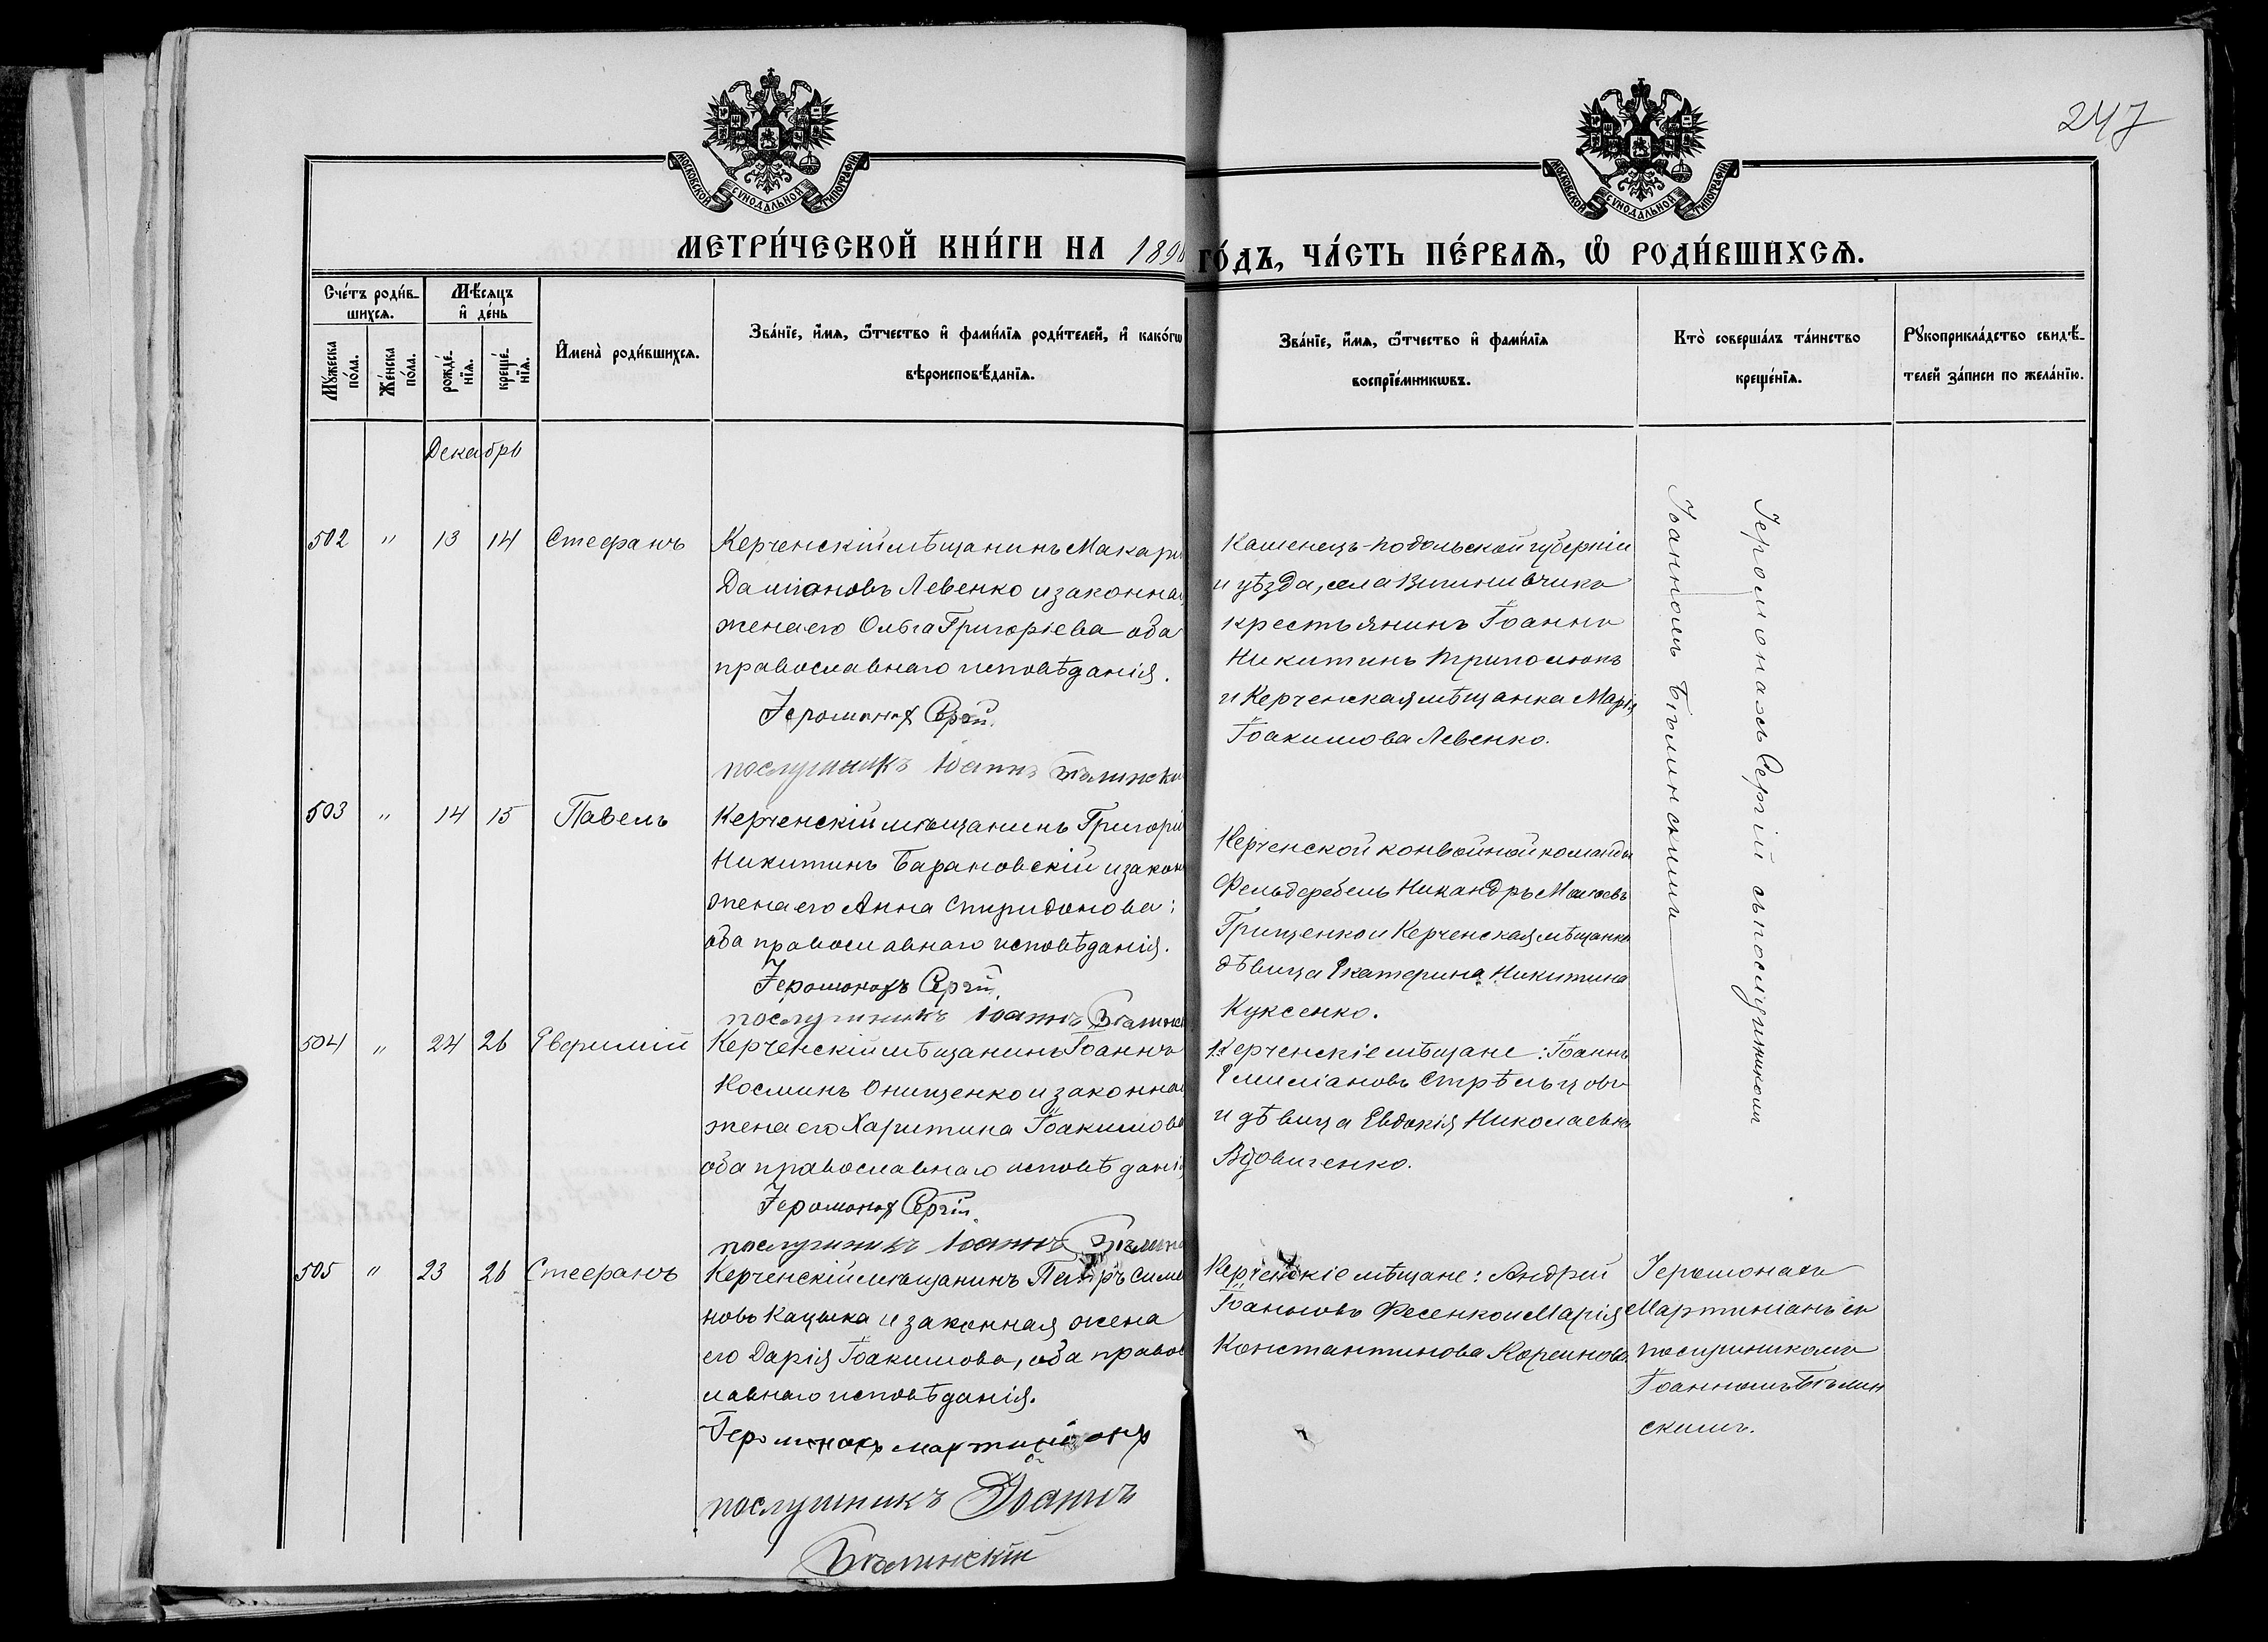 247
МОСКОВСКОЙ СѴНОДАЛЬНОЙ ТИПОГРАФІИ
МОСКОВСКОЙ СѴНОДАЛЬНОЙ ТИПОГРАФІИ
МЕТРИ́ЧЕСКОЙ КНИ́ГИ НА 1890 ГО́ДЪ, ЧА́СТЬ ПЕ́РВАѦ, Ѡ҆ РОДИ́ВШИХСѦ.
Сче́тъ роди́в-
шихсѧ.
Мꙋ́жеска
по́ла.
Же́нска
по́ла.
Мѣ́сѧцъ
и҆ де́нь
рожде́-
нїѧ.
креще́-
нїѧ.
И҆мена̀ роди́вшихсѧ.
Зва́нїе, и҆́мѧ, ѻ҆́тчество и҆ фами́лїѧ роди́телей, и҆ како́гѡ
вѣроисповѣ́данїѧ.
Зва́нїе, и҆́мѧ, ѻ҆́тчество и҆ фами́лїѧ
воспрїе́мникѡвъ.
Кто̀ соверша́лъ та́инство
креще́нїѧ.
Рꙋкоприкла́дство свидѣ́-
телей за́писи по жела́нїю.
Декабрь
502 " 13 14 Стефанъ
Керченскій мѣщанинъ Макарі
Даміановъ Левенко и законная
жена его Ольга Григоріева оба
православнаго исповѣданія.
Іеромонах Сергій.
послушникъ Іоаннъ Бѣлински
Каменецъ-Подольской губерніи
и уѣзда, села
крестьянинъ Іоаннъ
Никитинъ
и Керченская мѣщанка Марія
Іоакимова Левенко.
Іеромонахъ Сергій съ послушникомъ
Іоанномъ Бѣлинскимъ
503 " 14 15 Павелъ
Керченскій мѣщанинъ Григорій
Никитинъ Барановскій и закон
жена его Анна Спиридонова;
оба православнаго исповѣданія.
Іеромонахъ Сергій.
послушникъ Іоаннъ Бѣлинс
Керченской конвойной команды
Фельдфебель Никандръ
Грищенко и Керченская мѣщанка
дѣвица Екатерина Никитина
Куксенко.
504 " 24 26 Евфимій
Керченскій мѣщанинъ Іоаннъ
Косминъ Онищенко и законная
жена его Харитина Іоакимова
оба православнаго исповѣданія
Іеромонах Сергій.
послушникъ Іоаннъ Бѣлинс
Керченскіе мѣщане: Іоаннъ
Емиліановъ Стрѣльцовъ
и дѣвица Евдокія Николаевна
Вдовиченко.
505 " 23 26 Стефанъ
Керченскій мѣщанинъ Петръ Симо
новъ Кацыка и законная жена
его Дарія Іоакимова, оба правос
лавнаго исповѣданія.
Іеромонахъ Мартиніанъ
послушникъ Іоаннъ
Бѣлинскій
Керченскіе мѣщане: Андрей
Іоанновъ Фесенко и Марія
Константинова
Іеромонахъ
Мартиніанъ съ
послушникомъ
Іоанномъ Бѣлин
скимъ.